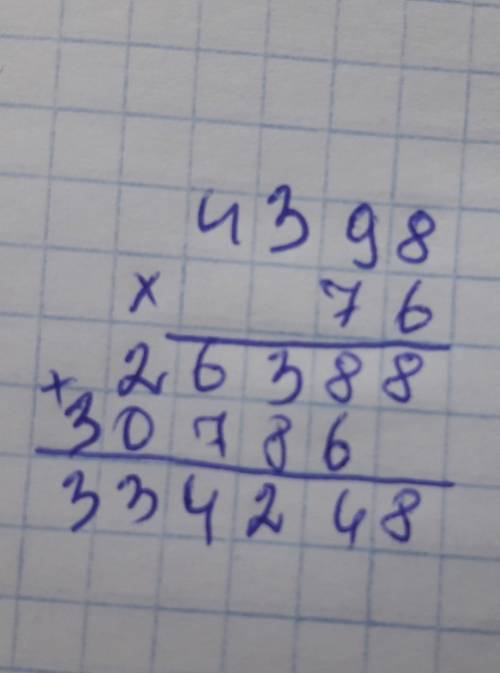 4398
× 76
26388
+
30786
334248